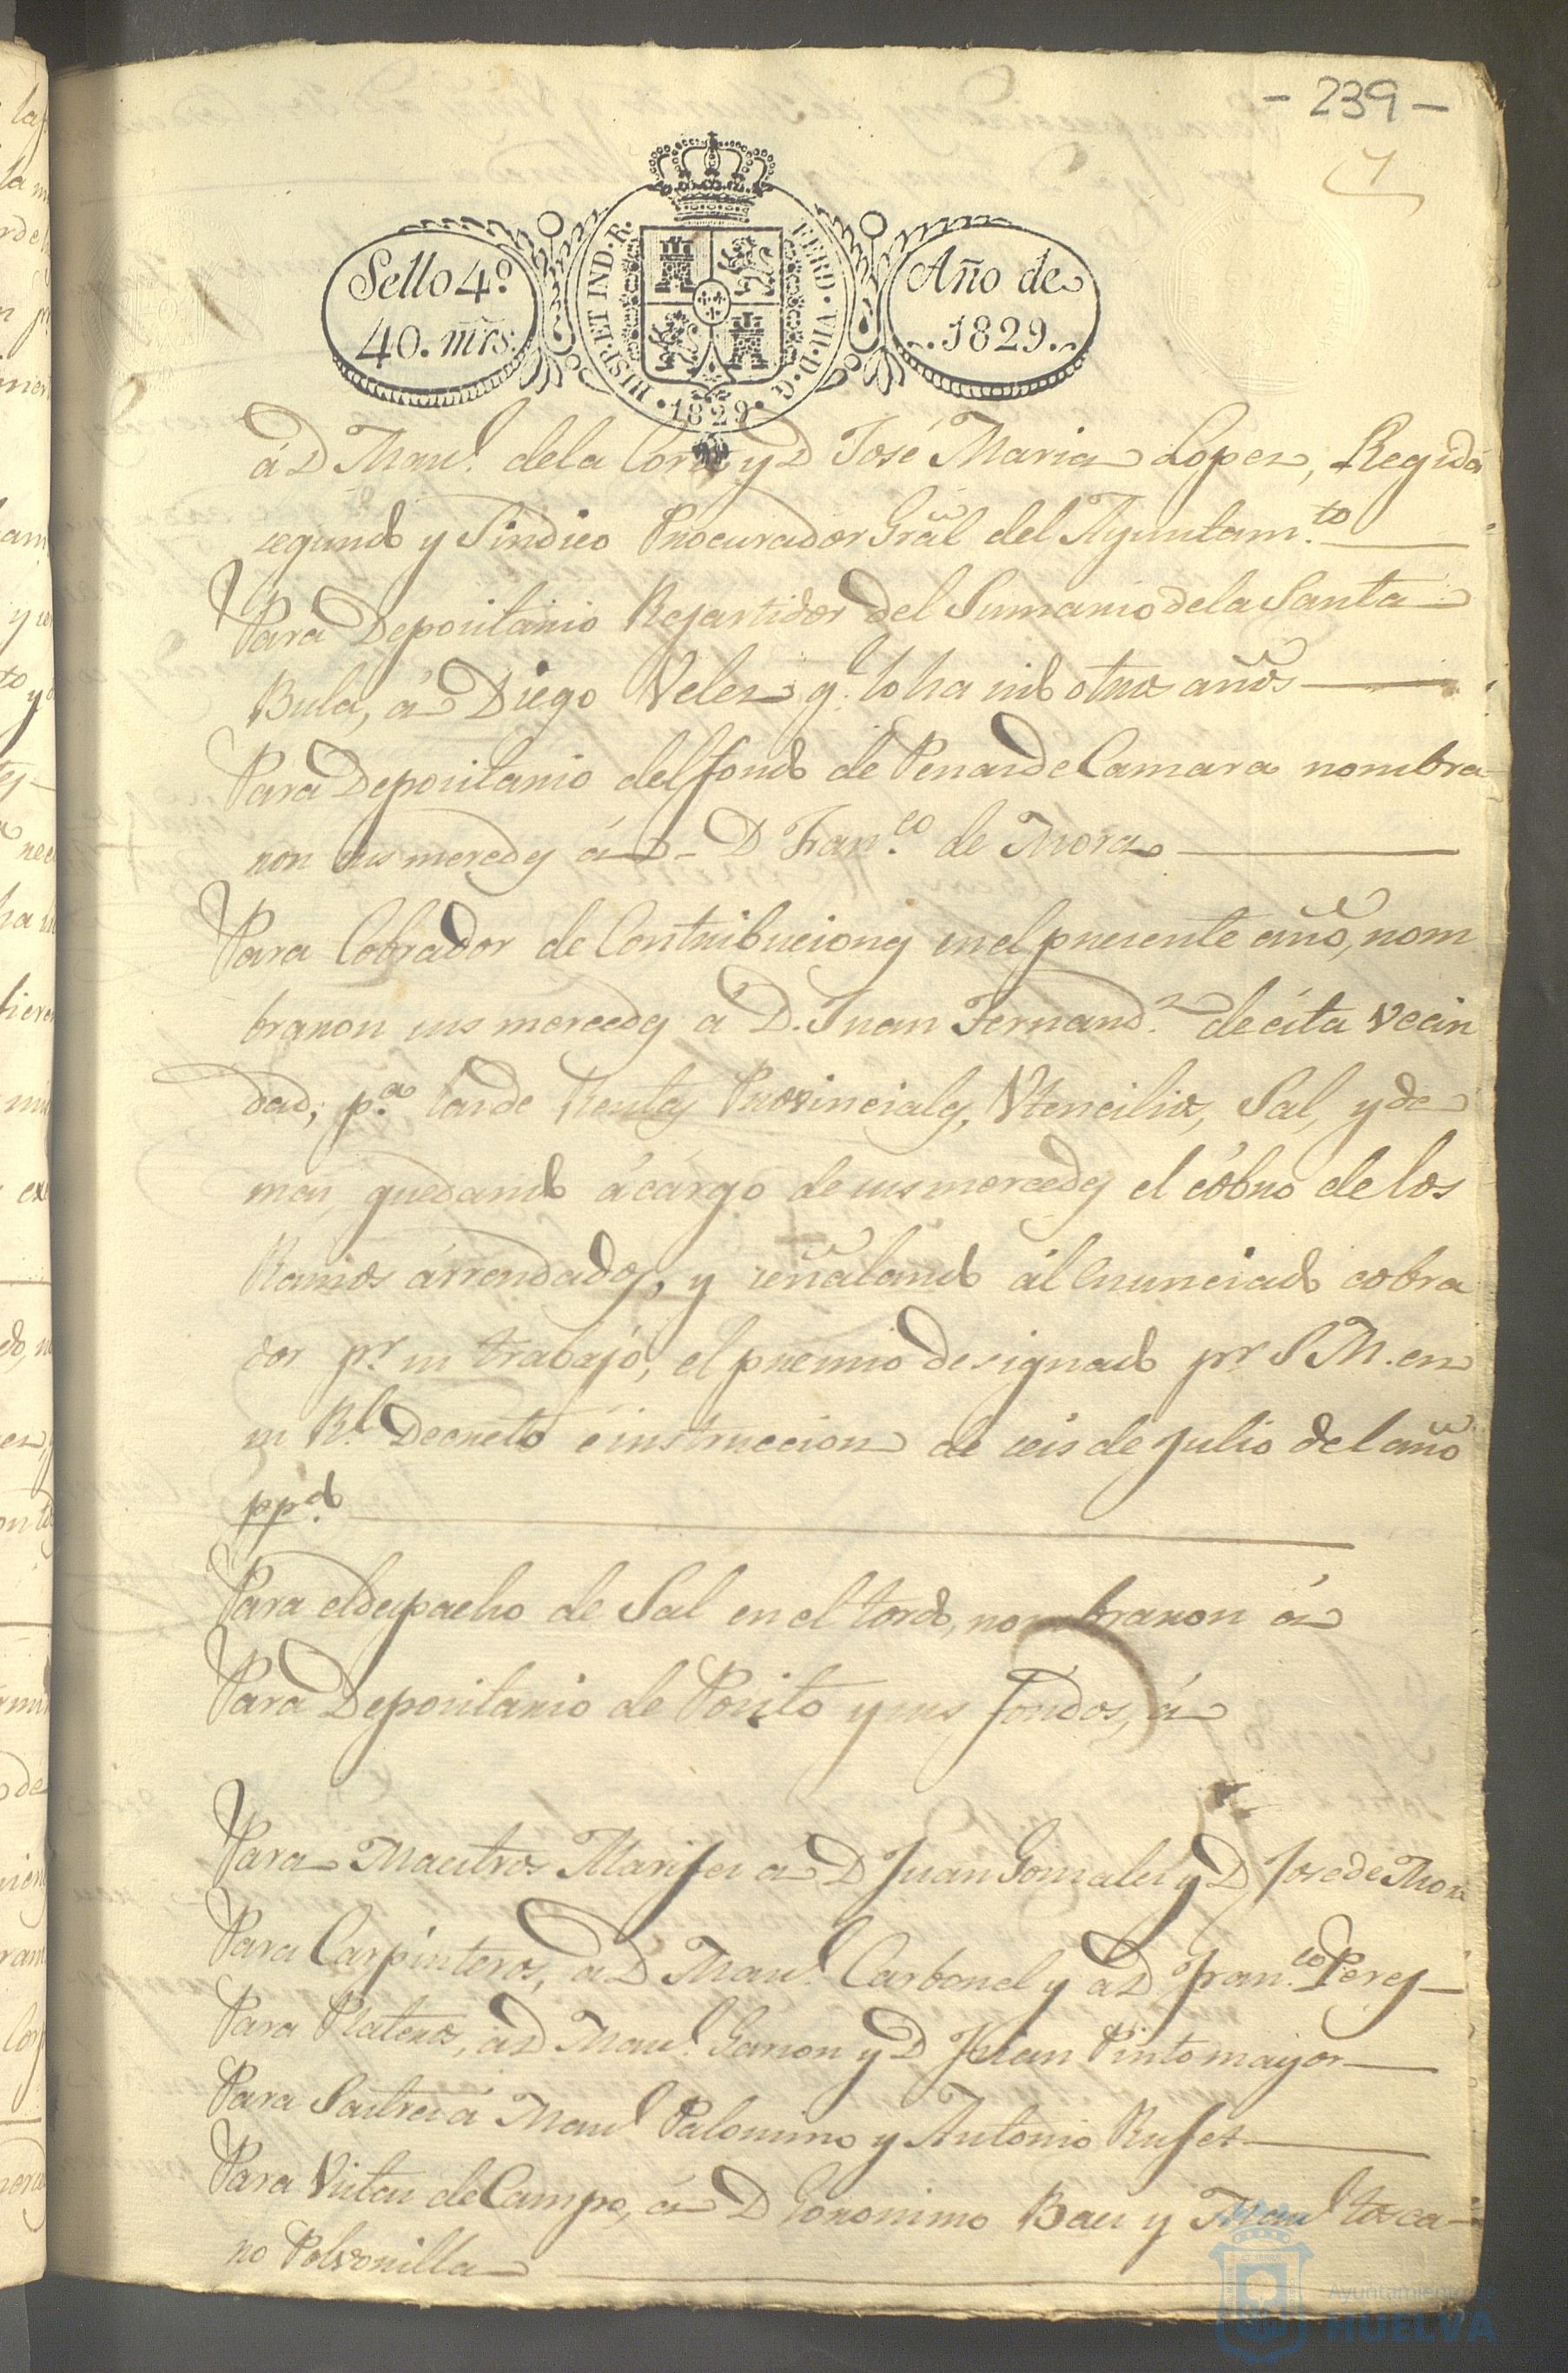 - 239 -
1
Sello 4º
40. mrs.
HISP. ET IND. R.
FERD. VII. D. G.
1829
Año de
1829.
á D Manl. dela Corte y D José Maria Lopez, Regidor
segundo y Sindico Procurador Gral del Ayuntamto.
Para Depositario Repartidor del Sumario de la Santa
Bula, á Diego Velez q. lo ha sido otros años
Para Depositario del fondo de Penas de Camara nombra-
ron sus mercedes á D. D Franco. de Mora
Para Cobrador de Contribuciones en el presente año, nom
braron sus mercedes á D. Juan Fernandz. de ésta vecin
dad, pa. las de Rentas Provinciales, Utencilios, Sal, y de
mas, quedando á cargo de sus mercedes el cobro de los
Ramos arrendados, y señalando al enunciado cobra
dor pr. su trabajo, el premio designado pr S M. en
su Rl. Decreto é instruccion de seis de julio del año
ppdo.
Para el despacho de Sal en el tordo, nombraron á
Para Depositario de Posito y sus fondos, á
Para Maestros Alarifes a D Juan Gonzales y D Jose de Mora
Para Carpinteros, á D Manl. Carbonel y á D Franco. Perez
Para Plateros, á D Manl. Garzon y D Juan Pinto mayor
Para Sastres á Manl Palomino y Antonio Rufet
Para Vistas de Campo, á D Geronimo Baes y Manl Tosca-
no Polvorilla
Ayuntamiento de
HUELVA